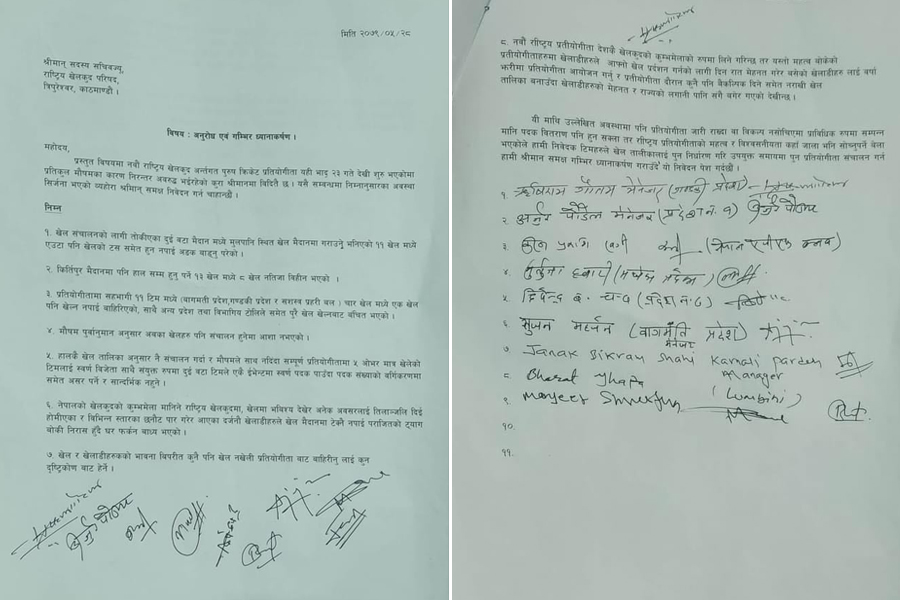 मिति २०७९/०५/२८
श्रीमान् सदस्य सचिवज्यू,
राष्ट्रिय खेलकुद परिषद,
त्रिपुरेश्वर, काठमाण्डौ ।
विषय : अनुरोध एवं गम्भिर ध्यानाकर्षण ।
महोदय,
प्रस्तुत विषयमा नवौं राष्ट्रिय खेलकुद अन्तर्गत पुरुष क्रिकेट प्रतियोगीता यही भाद्र २३ गते देखी शुरु भएकोमा
प्रतिकुल मौषमका कारण निरन्तर अवरुद्ध भईरहेको कुरा श्रीमानमा विदितै छ । यसै सम्बन्धमा निम्नानुसारका अवस्था
सिर्जना भएको व्यहोरा श्रीमान् समक्ष निवेदन गर्न चाहान्छौं ।
निम्न
१. खेल संचालनको लागी तोकीएका दुई वटा मैदान मध्ये मुलपानि स्थित खेल मैदानमा गराउनु भनिएको ११ खेल मध्ये
एउटा पनि खेलको टस समेत हुन नपाई अडक बाड्नु परेको ।
२. किर्तिपुर मैदानमा पनि हाल सम्म हुनु पर्ने १३ खेल मध्ये ८ खेल नतिजा विहीन भएको ।
३. प्रतियोगीतामा सहभागी ११ टिम मध्ये (बागमती प्रदेश,गण्डकी प्रदेश र सशस्त्र प्रहरी बल ) चार खेल मध्ये एक खेल
पनि खेल्न नपाई बाहिरिएको, साथै अन्य प्रदेश तथा विभागिय टोलिले समेत पुरै खेल खेल्नबाट बंचित भएको ।
४. मौषम पुर्वानुमान अनुसार अबका खेलहरु पनि संचालन हुनेमा आशा नभएको ।
५. हालकै खेल तालिका अनुसार नै संचालन गर्दा र मौषमले साथ नदिंदा सम्पूर्ण प्रतियोगीतामा ५ ओभर मात्र खेलेको
टिमलाई स्वर्ण विजेता साथै संयुक्त रुपमा दुई वटा टिमले एकै ईभेन्टमा स्वर्ण पदक पाउंदा पदक संख्याको वर्गिकरणमा
समेत असर पर्ने र सान्दर्भिक नहुने ।
६. नेपालको खेलकुदको कुम्भमेला मानिने राष्ट्रिय खेलकुदमा, खेलमा भविश्य देखेर अनेक अवसरलाई तिलाञ्जलि दिई
होमीएका र विभिन्न स्तरका छनौट पार गरेर आएका दर्जनौ खेलाडीहरुले खेल मैदानमा टेक्नै नपाई पराजितको ट्याग
बोकी निरास हुँदै घर फर्कन बाध्य भएको ।
७. खेल र खेलाडीहरुकको भावना बिपरीत कुनै पनि खेल नखेली प्रतियोगीता बाट बाहिरीनु लाई कुन
दृष्टिकोण बाट हेर्ने ।
८. नवौं राष्ट्रिय प्रतीयोगीता देशकै खेलकुदको कुम्भमेलाको रुपमा लिने गरिन्छ तर यस्तो महत्व बोकेको
प्रतीयोगीताहरुमा खेलाडीहरुले आफ्नो खेल प्रर्दशन गर्नको लागी दिन रात मेहनत गरेर बसेको खेलाडीहरु लाई बर्षा
झरीमा प्रतियोगीता आयोजन गर्नु र प्रतीयोगीता दौरान कुनै पनि बैकल्पिक दिने समेत नराखी खेल
तालिका बनाउंदा खेलाडीहरुको मेहनत र राज्यको लगानी पानि संगै बगेर गएको देखीन्छ ।
यी माथि उल्लेखित अवस्थामा पनि प्रतियोगीता जारी राख्दा वा विकल्प नसोचिएमा प्राविधिक रुपमा सम्पन्न
मानि पदक वितरण पनि हुन सक्ला तर राष्ट्रिय प्रतियोगीताको महत्व र विश्वसनीयता कहाँ जाला भनि सोच्नुपर्ने वेला
भएकोले हामी निवेदक टिमहरुले खेल तालीकालाई पुन निर्धारण गरि उपयुक्त समायमा पुन प्रतियोगीता संचालन गर्न
हामी श्रीमान समक्ष गम्भिर ध्यानाकर्षण गराउदै यो निवेदन पेश गर्दछौं ।
१. ऋषिराम गौतम मेनेजर (गण्डकी प्रदेश)
२. अर्जुन पौडेल मेनेजर (प्रदेश नं. १)
३. (नेपाल ए.पी.एफ क्लव)
४. (मधेस प्रदेश)
५. दिपेन्द्र ब. चन्द (प्रदेश नं. ७)
६. सुजन मर्हजन (वागमति प्रदेश)
मेनेजर
७. Janak Bikram Shahi Karnali Pardesh
Manager
८. Bharat Thapa
९. Manjeet Shrestha (Lumbini)
१०.
११.